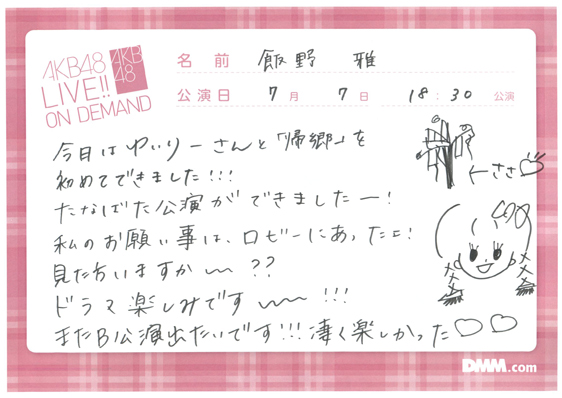 AKB48
LIVE!!
ON DEMAND
AKB
48
名前 飯野 雅
公演日 7月 7日 18:30 公演
今日はゆいりーさんと「帰郷」を
初めてできました!!!
たなばた公演ができましたー!
私のお願い事は、ロビーにあったよ!
見た方いますか〜??
ドラマ楽しみです〜!!!
またB公演出たいです!!!凄く楽しかった♡♡
←ささ♡
DMM.com